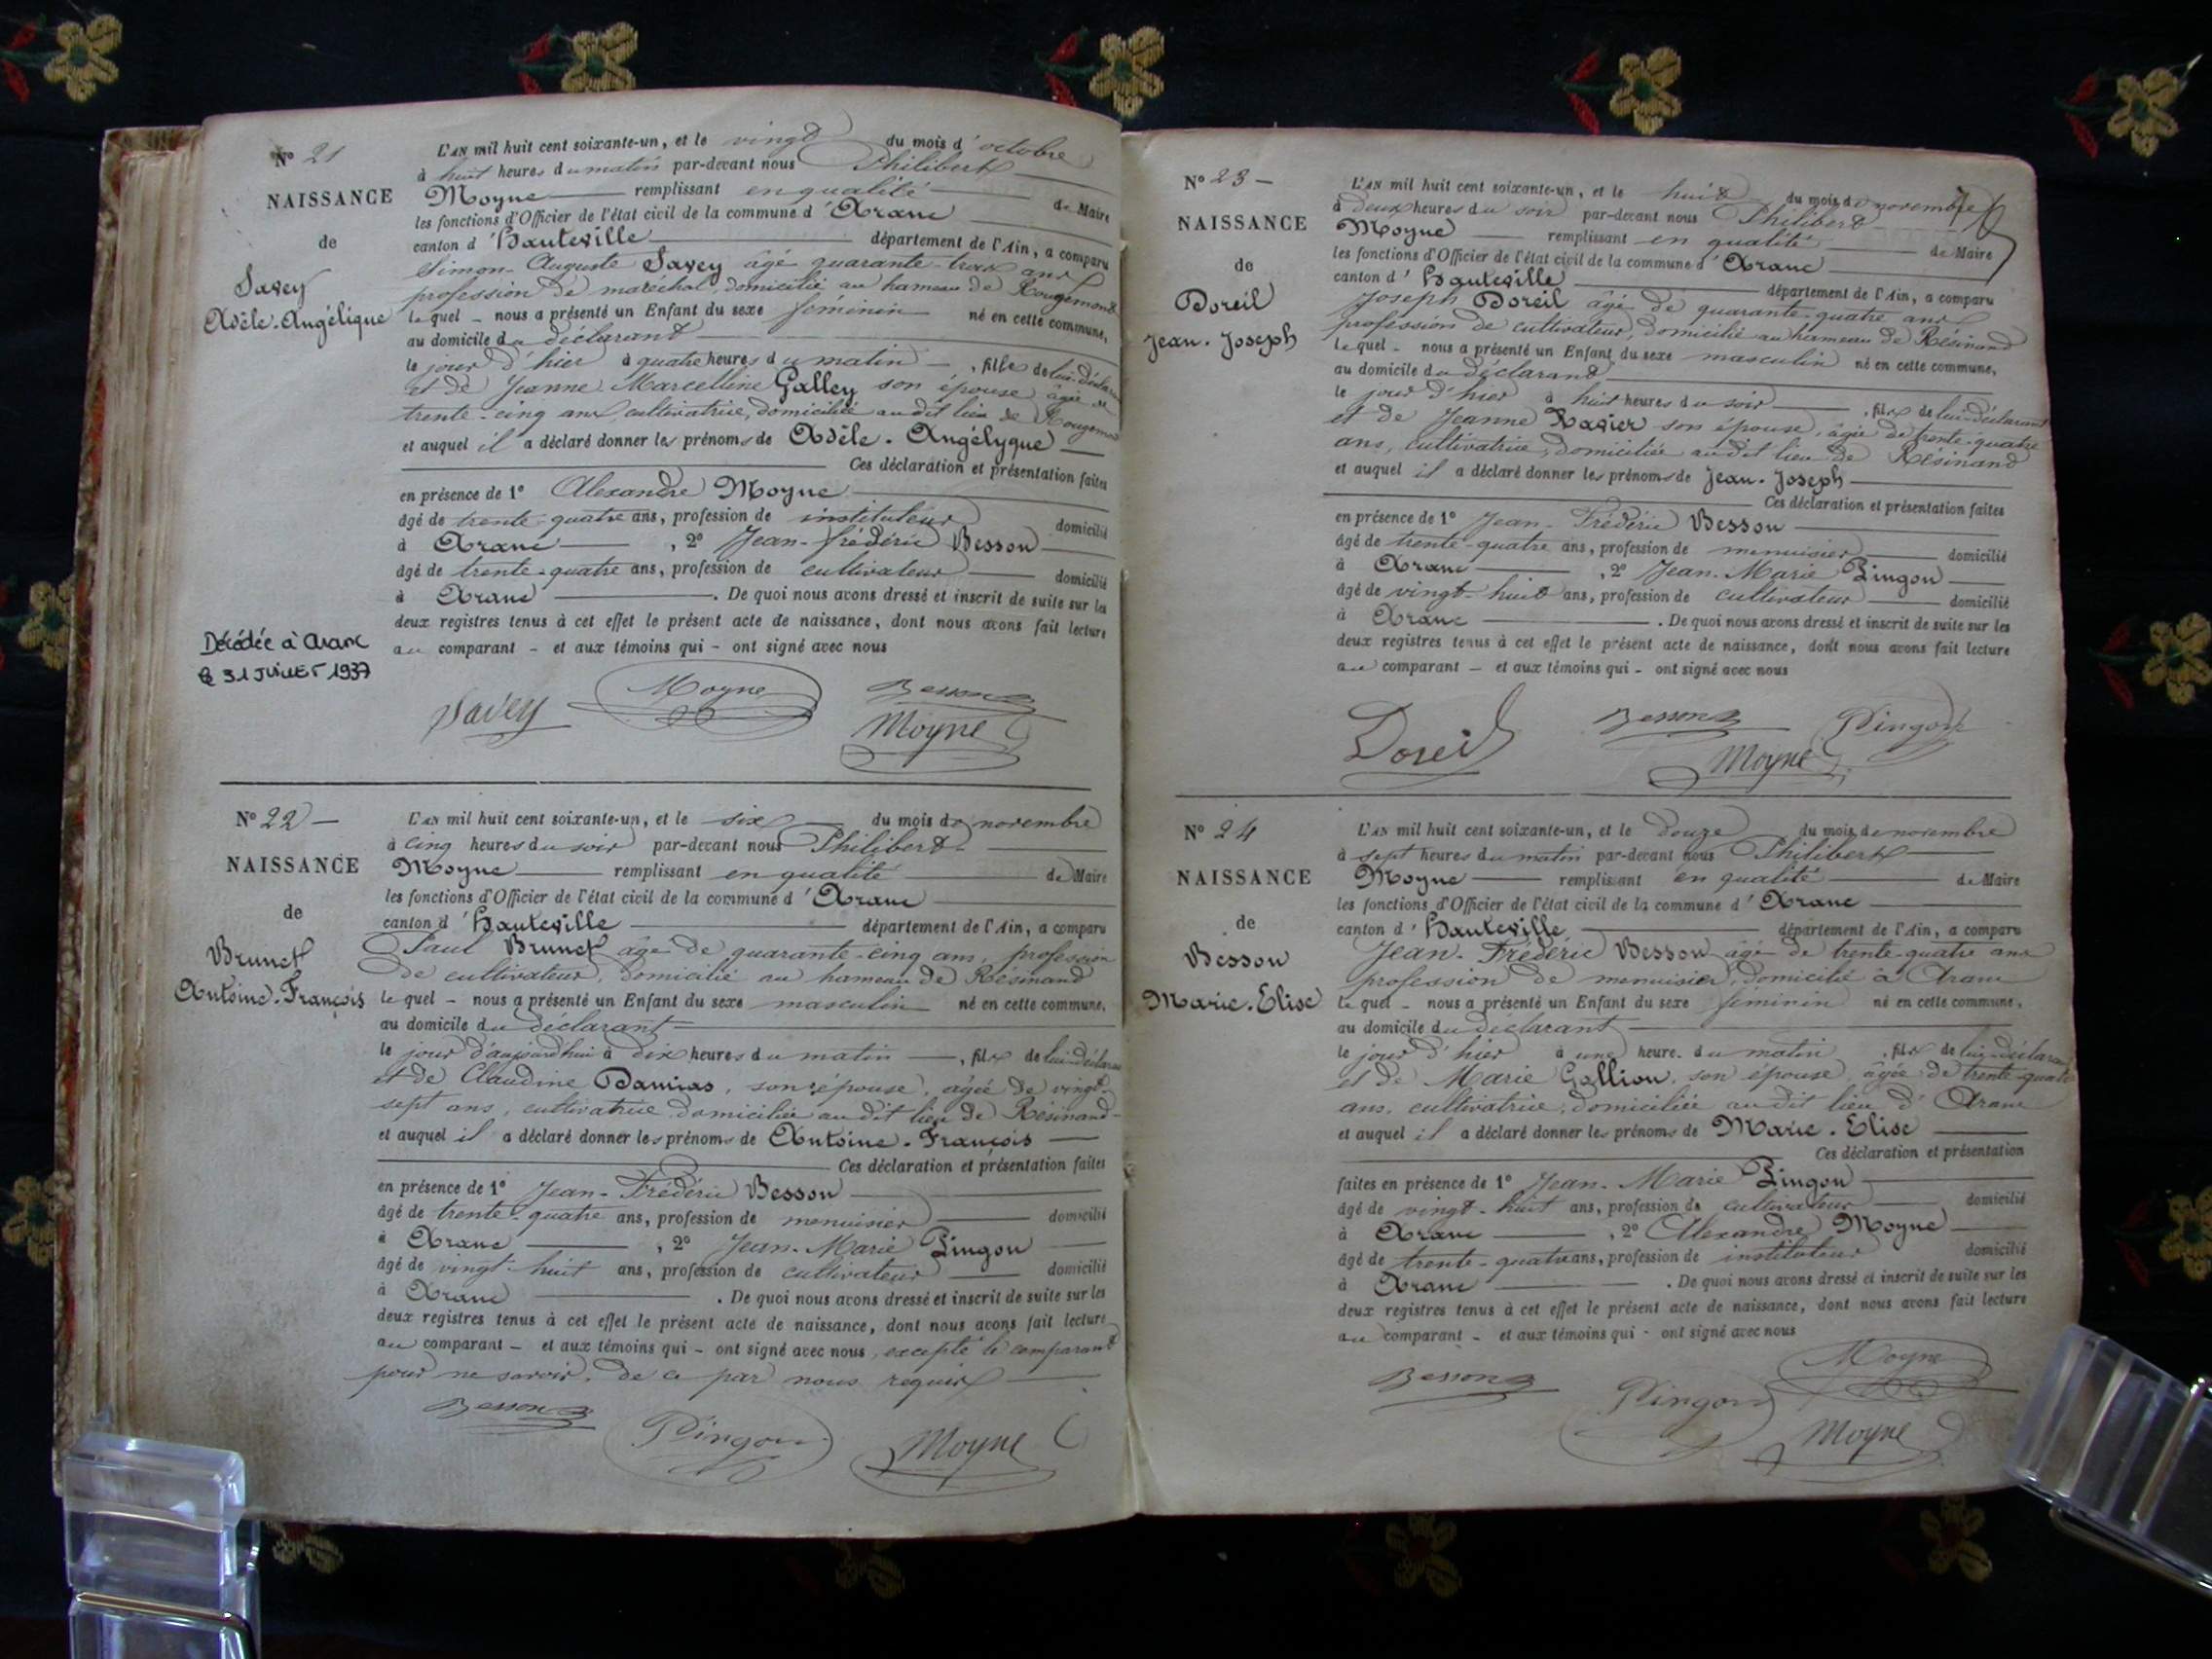 N° 21
NAISSANCE
de
Savey
Adèle-Angélique
Décédée à Aranc
le 31 juillet 1937
L'AN mil huit cent soixante-un, et le vingt du mois d'octobre
à huit heures du matin par-devant nous Philibert
Moyne remplissant en qualité de Maire
les fonctions d'Officier de l'état civil de la commune d'Aranc
canton d'Hauteville département de l'Ain, a comparu
Simon-Auguste Savey âgé quarante-trois ans
profession de maréchal, domicilié au hameau de Rougemont
lequel - nous a présenté un Enfant du sexe féminin né en cette commune,
au domicile du déclarant
le jour d'hier à quatre heures du matin, fille de lui déclarant
et de Jeanne-Marcelline Galley son épouse âgée de
trente-cinq ans cultivatrice, domiciliée audit lieu de Rougemont
et auquel il a déclaré donner les prénoms de Adèle-Angélyque
Ces déclaration et présentation faites
en présence de 1° Alexandre Moyne
âgé de trente-quatre ans, profession de instituteur domicilié
à Aranc, 2° Jean-frédéric Besson
âgé de trente-quatre ans, profession de cultivateur domicilié
à Aranc. De quoi nous avons dressé et inscrit de suite sur les
deux registres tenus à cet effet le présent acte de naissance, dont nous avons fait lecture
au comparant - et aux témoins qui - ont signé avec nous
Savey Moyne Besson
Moyne
N° 22
NAISSANCE
de
Brunet
Antoine-François
L'AN mil huit cent soixante-un, et le six du mois de novembre
à cinq heures du soir par-devant nous Philibert
Moyne remplissant en qualité de Maire
les fonctions d'Officier de l'état civil de la commune d'Aranc
canton d'Hauteville département de l'Ain, a comparu
Paul Brunet âgé de quarante-cinq ans, profession
de cultivateur, domicilié au hameau de Résinand
lequel - nous a présenté un Enfant du sexe masculin né en cette commune,
au domicile du déclarant
le jour d'aujourd'hui à dix heures du matin, fils de lui déclarant
et de Claudine Damias, son épouse, âgée de vingt
sept ans, cultivatrice domiciliée audit lieu de Résinand
et auquel il a déclaré donner les prénoms de Antoine-François
Ces déclaration et présentation faites
en présence de 1° Jean-Frédéric Besson
âgé de trente-quatre ans, profession de menuisier domicilié
à Aranc, 2° Jean-Marie Pingon
âgé de vingt-huit ans, profession de cultivateur domicilié
à Aranc. De quoi nous avons dressé et inscrit de suite sur les
deux registres tenus à cet effet le présent acte de naissance, dont nous avons fait lecture
au comparant - et aux témoins qui - ont signé avec nous, excepté le comparant
pour ne savoir, de ce par nous requis
Besson Pingon Moyne
N° 23
NAISSANCE
de
Doreil
Jean-Joseph
L'AN mil huit cent soixante-un, et le huit du mois de novembre
à deux heures du soir par-devant nous Philibert
Moyne remplissant en qualité de Maire
les fonctions d'Officier de l'état civil de la commune d'Aranc
canton d'Hauteville département de l'Ain, a comparu
Joseph Doreil âgé de quarante-quatre ans
profession de cultivateur, domicilié au hameau de Résinand
lequel - nous a présenté un Enfant du sexe masculin né en cette commune,
au domicile du déclarant
le jour d'hier à huit heures du soir, fils de lui déclarant
et de Jeanne Xavier son épouse, âgée de trente-quatre
ans, cultivatrice, domiciliée audit lieu de Résinand
et auquel il a déclaré donner les prénoms de Jean-Joseph
Ces déclaration et présentation faites
en présence de 1° Jean-Frédéric Besson
âgé de trente-quatre ans, profession de menuisier domicilié
à Aranc, 2° Jean-Marie Pingon
âgé de vingt-huit ans, profession de cultivateur domicilié
à Aranc. De quoi nous avons dressé et inscrit de suite sur les
deux registres tenus à cet effet le présent acte de naissance, dont nous avons fait lecture
au comparant - et aux témoins qui - ont signé avec nous
Doreil Besson Pingon
Moyne
N° 24
NAISSANCE
de
Besson
Marie-Elise
L'AN mil huit cent soixante-un, et le douze du mois de novembre
à sept heures du matin par-devant nous Philibert
Moyne remplissant en qualité de Maire
les fonctions d'Officier de l'état civil de la commune d'Aranc
canton d'Hauteville département de l'Ain, a comparu
Jean-Frédéric Besson âgé de trente-quatre ans
profession de menuisier, domicilié à Aranc
lequel - nous a présenté un Enfant du sexe féminin né en cette commune,
au domicile du déclarant
le jour d'hier à une heure du matin, fille de lui déclarant
et de Marie Gallion, son épouse, âgée de trente-quatre
ans, cultivatrice, domiciliée audit lieu d'Aranc
et auquel il a déclaré donner les prénoms de Marie-Elise
Ces déclaration et présentation
faites en présence de 1° Jean-Marie Pingon
âgé de vingt-huit ans, profession de cultivateur domicilié
à Aranc, 2° Alexandre Moyne
âgé de trente-quatre ans, profession de instituteur domicilié
à Aranc. De quoi nous avons dressé et inscrit de suite sur les
deux registres tenus à cet effet le présent acte de naissance, dont nous avons fait lecture
au comparant - et aux témoins qui - ont signé avec nous
Besson Pingon Moyne
Moyne